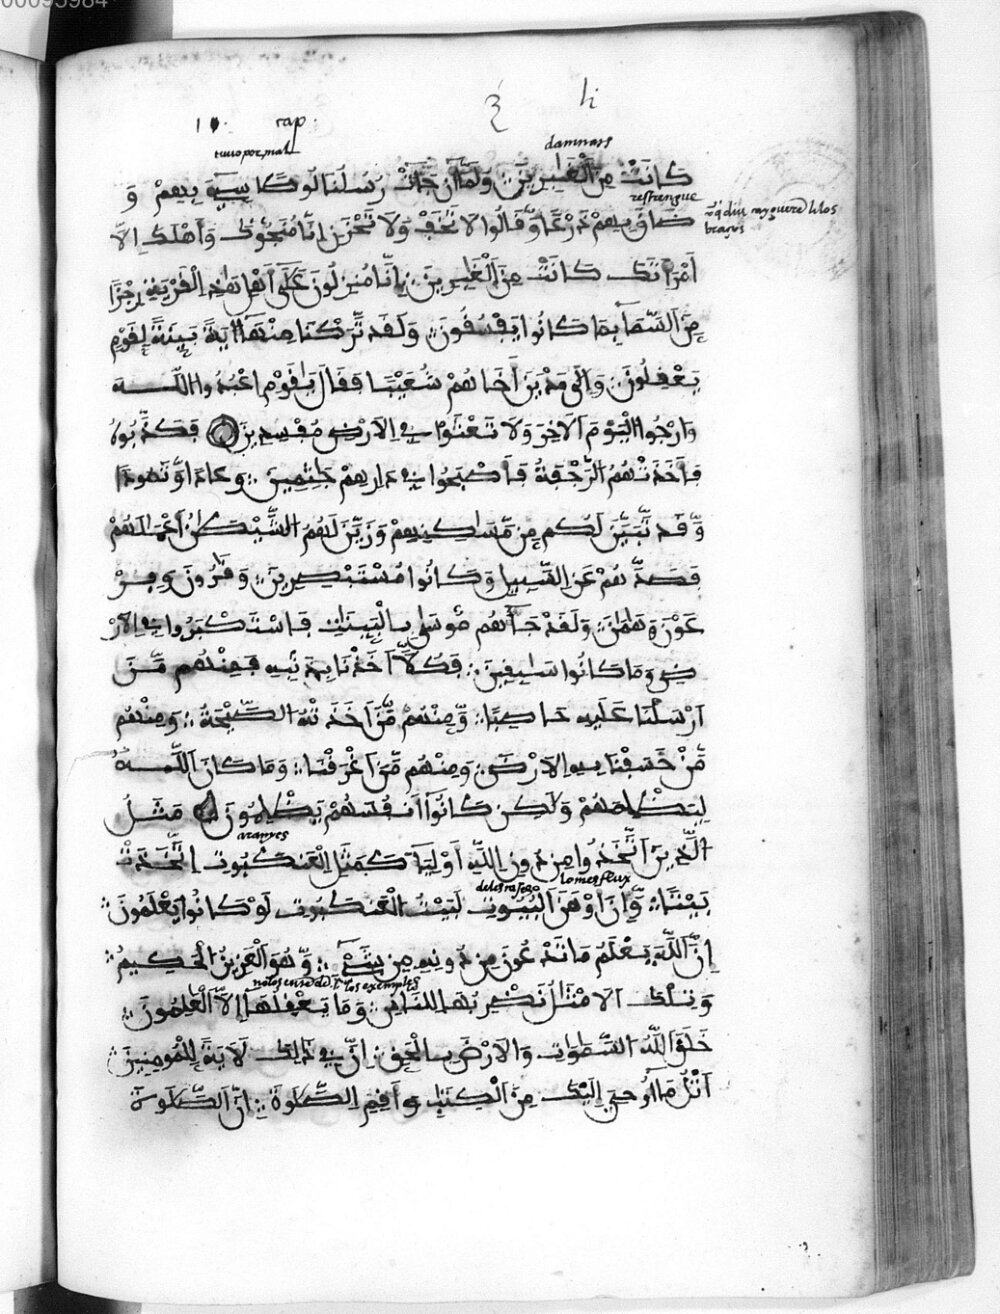 00095984
cap.
tuvo por mal
damnats
كَانَتْ مِنَ ٱلْغَٰبِرِينَ وَلَمَّا أَن جَآتْ رُسُلُنَا لُوطًا سِيٓءَ بِهِمْ وَ
restrengue
ضَاقَ بِهِمْ ذَرْعًا وَّقَالُوا لَا تَخَفْ وَلَا تَحْزَنِ انَّا مُنَجُّوكَ وَأَهْلَكَ إِلَّا
braços
اَمْرَأَتَكَ كَانَتْ مِنَ ٱلْغَٰبِرِينَ إِنَّا مُنزِلُونَ عَلَىٰ أَهْلِ هَٰذِهِ ٱلْقَرْيَةِ رِجْزًا
مِّنَ ٱلسَّمَآ بِمَا كَانُوا يَفْسُقُونَ وَلَقَد تَّرَكْنَا مِنْهَا ءَايَةً بَيِّنَةً لِقَوْمٍ
يَعْقِلُونَ وَإِلَىٰ مَدْيَنَ أَخَاهُمْ شُعَيْبًا فَقَالَ يَٰقَوْمِ اعْبُدُوا اللَّه
وَارْجُوا الْيَوْمَ الَاخِرَ وَلَا تَعْثَوْا فِي الَارْضِ مُفْسِدِينَ فَكَذَّبُوهُ
فَأَخَذَتْهُمُ ٱلرَّجْفَةُ فَأَصْبَحُوا فِي دَارِهِمْ جَٰثِمِينَ وَعَادًا وَّثَمُودًا
وَّقَد تَّبَيَّنَ لَكُم مِّن مَّسَٰكِنِهِمْ وَزَيَّنَ لَهُمُ ٱلشَّيْطَٰنُ أَعْمَٰلَهُمْ
فَصَدَّهُمْ عَنِ ٱلسَّبِيلِ وَكَانُوا مُسْتَبْصِرِينَ وَقَٰرُونَ وَفِرْ
عَوْنَ وَهَٰمَٰنَ وَلَقَدْ جَآءَهُم مُّوسَىٰ بِالْبَيِّنَٰتِ فَاسْتَكْبَرُوا فِي الَارْ
ضِ وَمَا كَانُوا سَٰبِقِينَ فَكُلًّا اَخَذْنَا بِذَنۢبِهِ فَمِنْهُم مَّنَ
اَرْسَلْنَا عَلَيْهِ حَاصِبًا وَّمِنْهُمْ مَّنَ اَخَذَتْهُ الصَّيْحَةُ وَمِنْهُم
مَّنْ خَسَفْنَا بِهِ الَارْضَ وَمِنْهُم مَّنَ اَغْرَقْنَا وَمَا كَانَ ٱللَّهُ
لِيَظْلِمَهُمْ وَلَٰكِن كَانُوٓا أَنفُسَهُمْ يَظْلِمُونَ مَثَلُ
aranyes
ٱلَّذِينَ اَتَّخَذُوا مِن دُونِ اللَّهِ أَوْلِيَآءَ كَمَثَلِ الْعَنكَبُوتِ اِتَّخَذَتْ
lo mes flux
بَيْتًا وَّإِنَّ أَوْهَنَ ٱلْبُيُوتِ لَبَيْتُ الْعَنكَبُوتِ لَوْ كَانُوا يَعْلَمُونَ
اِنَّ ٱللَّهَ يَعْلَمُ مَا تَدْعُونَ مِن دُونِهِ مِن شَيْءٍ وَّهُوَ ٱلْعَزِيزُ الْحَكِيمُ
los exemples
وَتِلْكَ الَامْثَٰلُ نَضْرِبُهَا لِلنَّاسِ وَمَا يَعْقِلُهَآ إِلَّا ٱلْعَٰلِمُونَ
خَلَقَ اَللَّهُ السَّمَٰوَٰتِ وَالَارْضَ بِالْحَقِّ اِنَّ فِي ذَٰلِكَ لَأَيَةً لِّلْمُومِنِينَ
اَتْلُ مَا أُوحِيَ إِلَيْكَ مِنَ ٱلْكِتَٰبِ وَأَقِمِ الصَّلَوٰةَ إِنَّ ٱلصَّلَوٰةَ